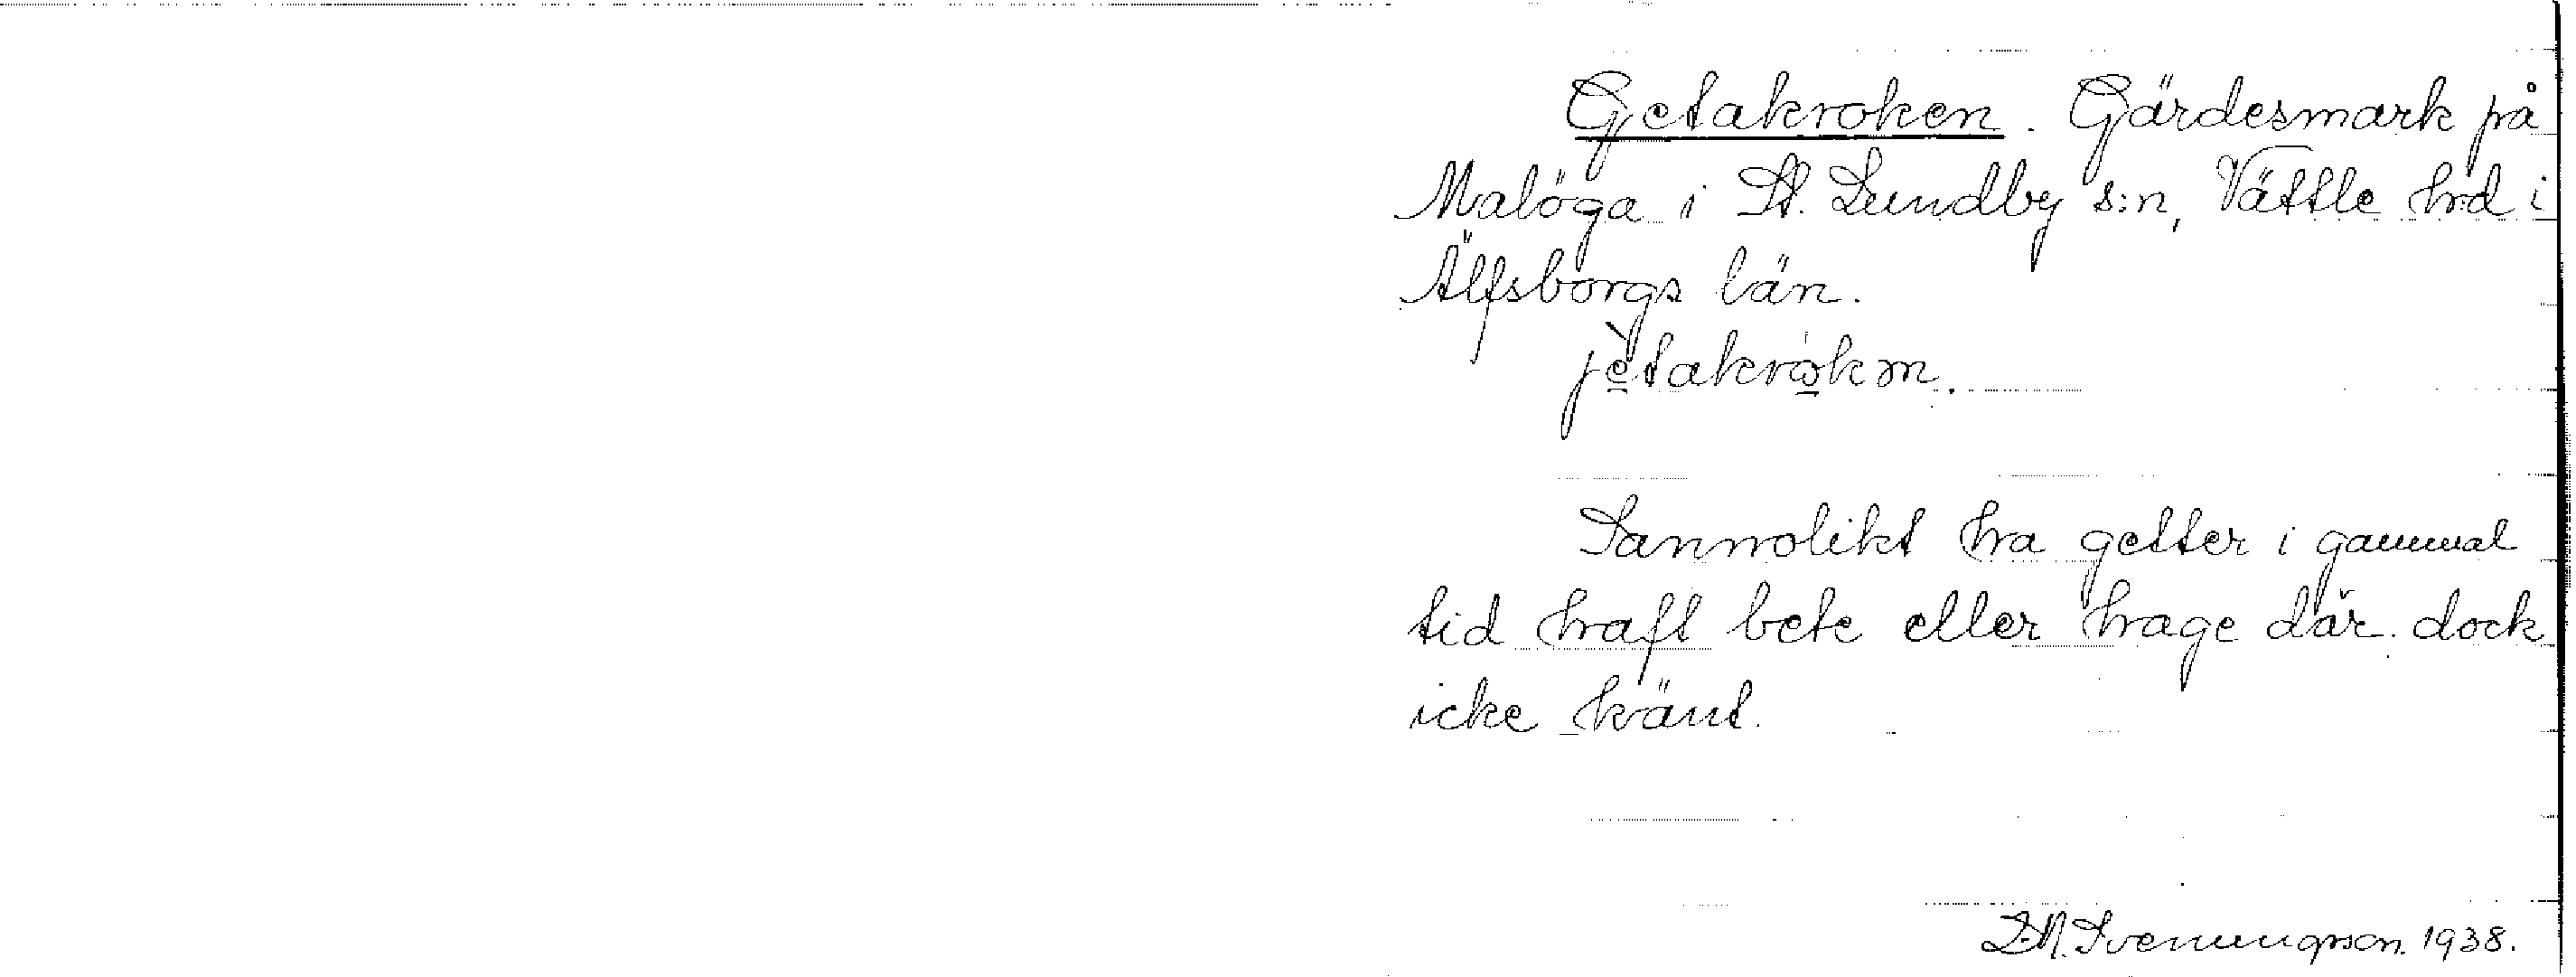 Getakroken. Gärdesmark på
Malöga i St. Lundby s:n, Vättle hd i
Älfsborgs län.
jetakrokm.
Sannolikt ha getter i gammal
tid haft bete eller hage där. dock
icke känt.
Svenungsson. 1938.